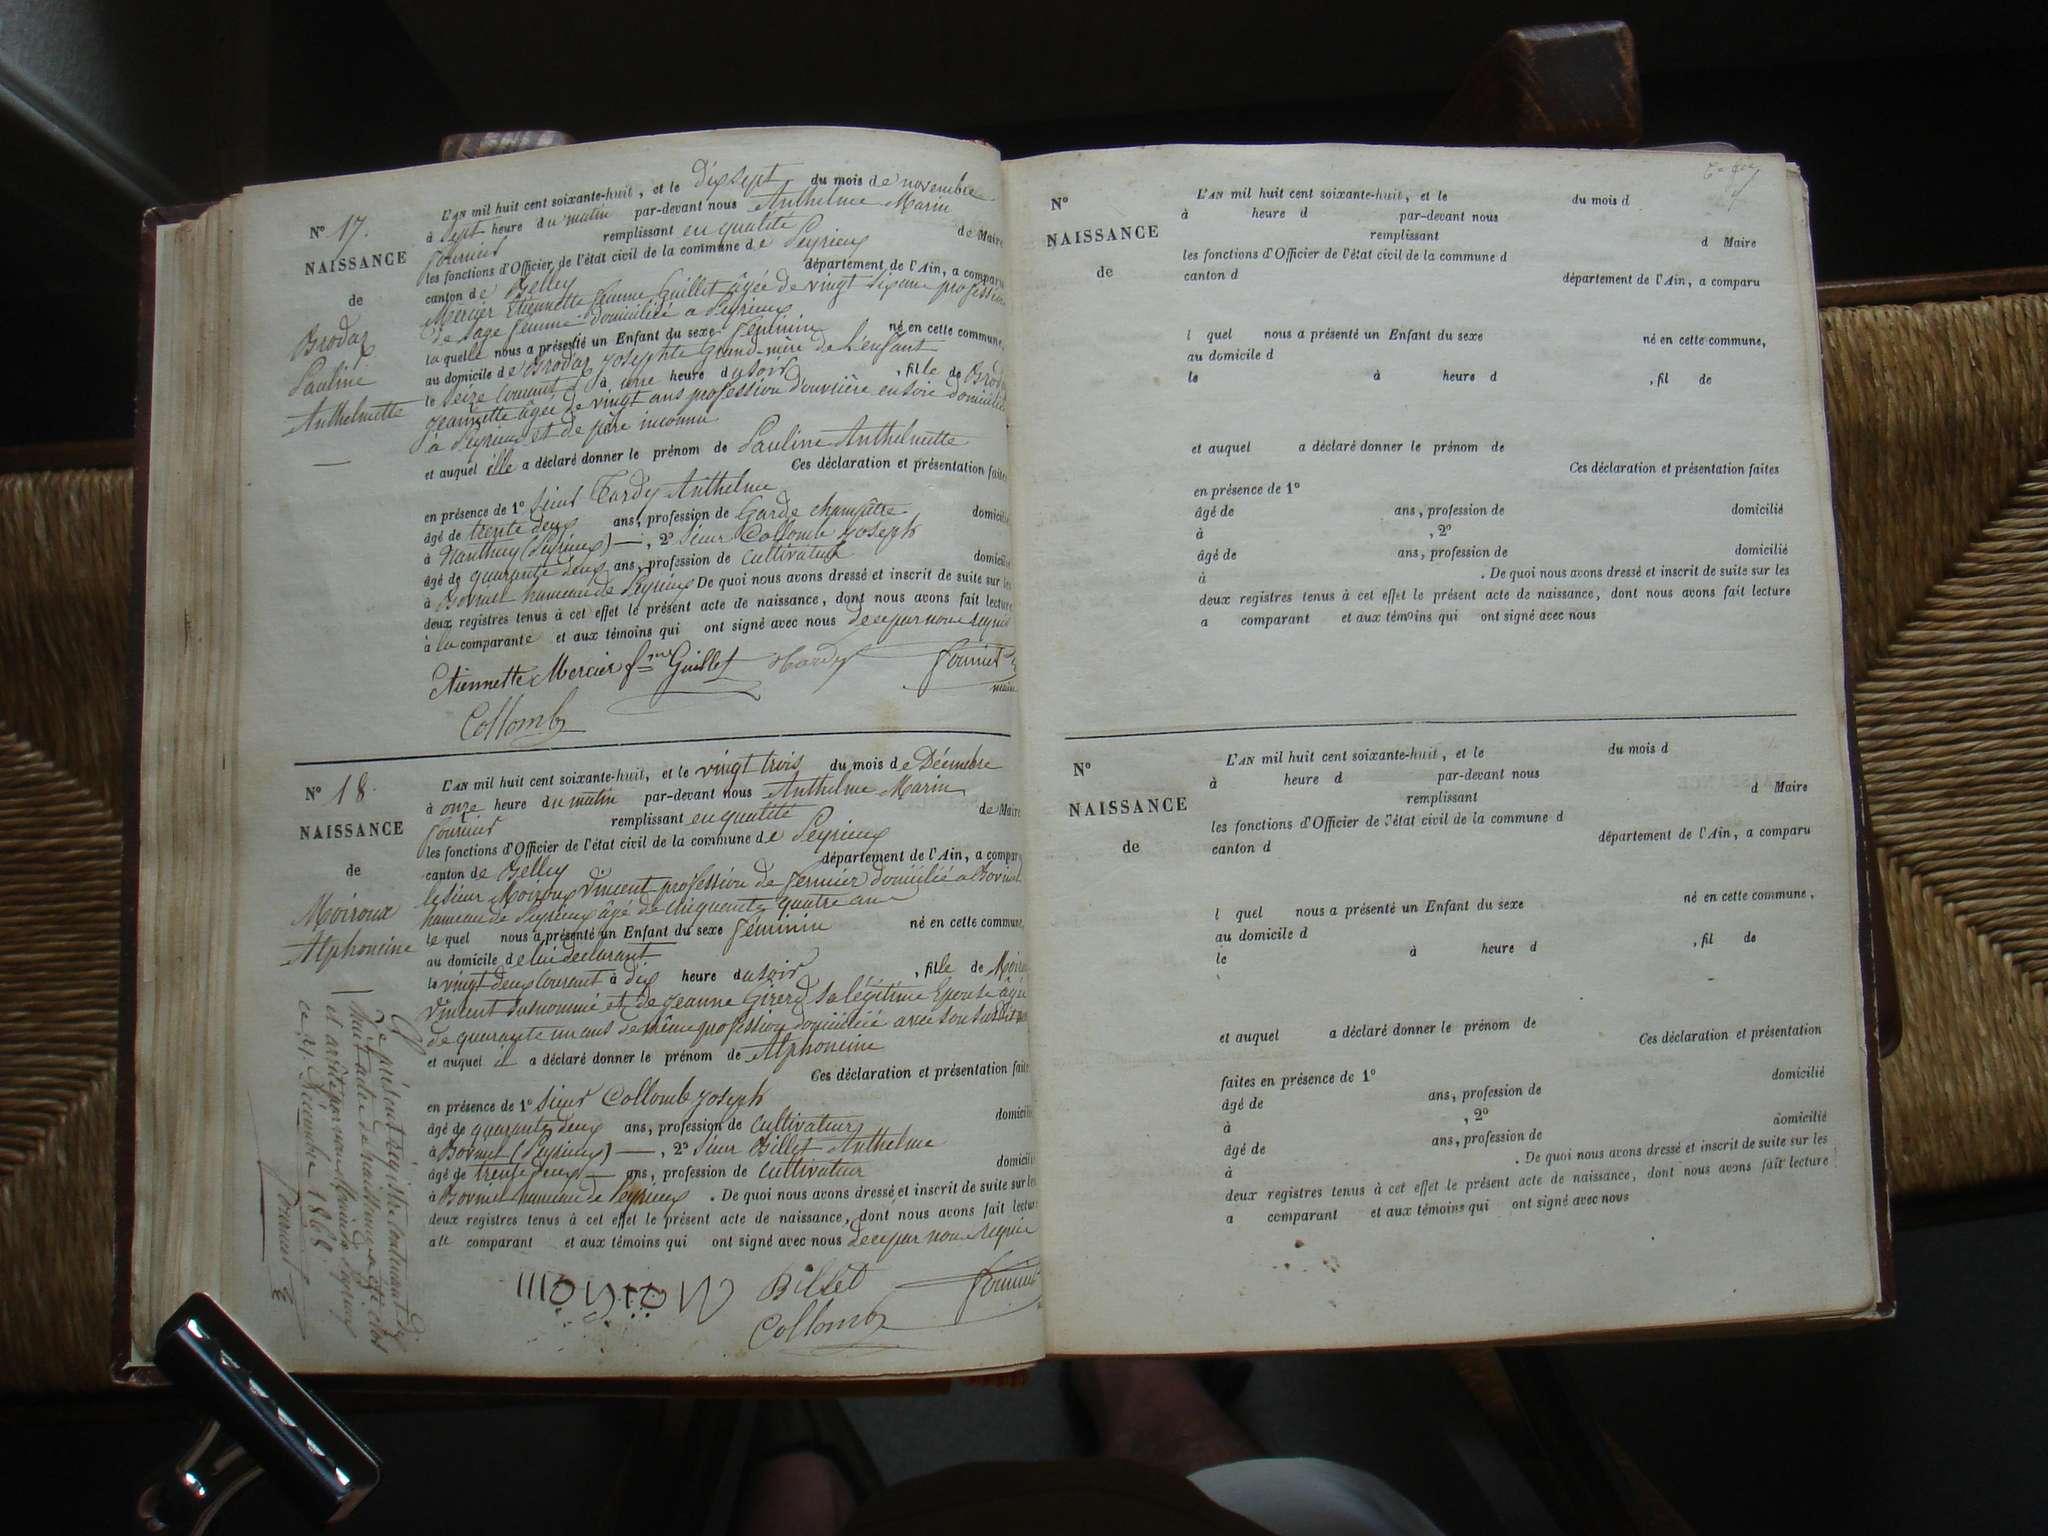 N° 17.
NAISSANCE
de
Brodaz
Pauline
Anthelmette
L'AN mil huit cent soixante-huit, et le dix sept du mois de novembre
à sept heure du matin par-devant nous Anthelme Marin
Fournier remplissant en qualité de Maire
les fonctions d'Officier de l'état civil de la commune de Peyrieux
canton de Belley département de l'Ain, a comparu
Mercier Etiennette femme Guillet âgée de vingt six ans profession
de sage femme domiciliée a Peyrieux
la quelle nous a présenté un Enfant du sexe féminin né en cette commune,
au domicile de Brodaz Josephte Grand-mère de l'enfant
le seize Courant à une heure du soir, fille de Brodaz
Jeannette âgée de vingt ans profession d'ouvrière en soie domiciliée
à Peyrieux et de père inconnu
et auquel elle a déclaré donner le prénom de Pauline Anthelmette
Ces déclaration et présentation faites
en présence de 1° sieur Tardy Anthelme
âgé de trente deux ans, profession de Garde champêtre domicilié
à Nanthuy (Peyrieux) —, 2° sieur Collomb Joseph
âgé de quarante deux ans, profession de cultivateur domicilié
à Bovinel hameau de Peyrieux De quoi nous avons dressé et inscrit de suite sur les
deux registres tenus à cet effet le présent acte de naissance, dont nous avons fait lecture
à la comparante et aux témoins qui ont signé avec nous de ce par nous requis
Etiennette Mercier fme Guillet Tardy Fournier
maire
Collomb
N° 18.
NAISSANCE
de
Moiroux
Alphonsine
L'AN mil huit cent soixante-huit, et le vingt trois du mois de Décembre
à onze heure du matin par-devant nous Anthelme Marin
Fournier remplissant en qualité de Maire
les fonctions d'Officier de l'état civil de la commune de Peyrieux
canton de Belley département de l'Ain, a comparu
le sieur Moiroux Vincent profession de fermier domicilié a Bovinel
hameau de Peyrieux âgé de cinquante quatre ans
le quel nous a présenté un Enfant du sexe féminin né en cette commune,
au domicile de lui déclarant
le vingt deux Courant à dix heure du soir, fille de Moiroux
Vincent susnommé et de Jeanne Girerd sa légitime Epouse âgée
de quarante un ans de même profession domiciliée avec son susdit mari
et auquel il a déclaré donner le prénom de Alphonsine
Ces déclaration et présentation faites
en présence de 1° sieur Collomb Joseph
âgé de quarante deux ans, profession de cultivateur domicilié
à Bovinel (Peyrieux) —, 2° sieur Billet Anthelme
âgé de trente deux — ans, profession de cultivateur domicilié
à Bovinel hameau de Peyrieux. De quoi nous avons dressé et inscrit de suite sur les
deux registres tenus à cet effet le présent acte de naissance, dont nous avons fait lecture
au comparant et aux témoins qui ont signé avec nous de ce par nous requis
Billet Fournier
Collomb
Le présent registre contenant dix
huit actes de naissance a été clos
et arrêté par nous Maire de Peyrieux
ce 31 Décembre 1868.
Fournier
N°
NAISSANCE
de
L'AN mil huit cent soixante-huit, et le du mois d
à heure d par-devant nous
remplissant d Maire
les fonctions d'Officier de l'état civil de la commune d
canton d département de l'Ain, a comparu
l quel nous a présenté un Enfant du sexe né en cette commune,
au domicile d
le à heure d , fil de
et auquel a déclaré donner le prénom de
Ces déclaration et présentation faites
en présence de 1°
âgé de ans, profession de domicilié
à , 2°
âgé de ans, profession de domicilié
à . De quoi nous avons dressé et inscrit de suite sur les
deux registres tenus à cet effet le présent acte de naissance, dont nous avons fait lecture
a comparant et aux témoins qui ont signé avec nous
N°
NAISSANCE
de
L'AN mil huit cent soixante-huit, et le du mois d
à heure d par-devant nous
remplissant d Maire
les fonctions d'Officier de l'état civil de la commune d
canton d département de l'Ain, a comparu
l quel nous a présenté un Enfant du sexe né en cette commune,
au domicile d
le à heure d , fil de
et auquel a déclaré donner le prénom de
Ces déclaration et présentation
faites en présence de 1°
âgé de ans, profession de domicilié
à , 2°
âgé de ans, profession de domicilié
à . De quoi nous avons dressé et inscrit de suite sur les
deux registres tenus à cet effet le présent acte de naissance, dont nous avons fait lecture
a comparant et aux témoins qui ont signé avec nous